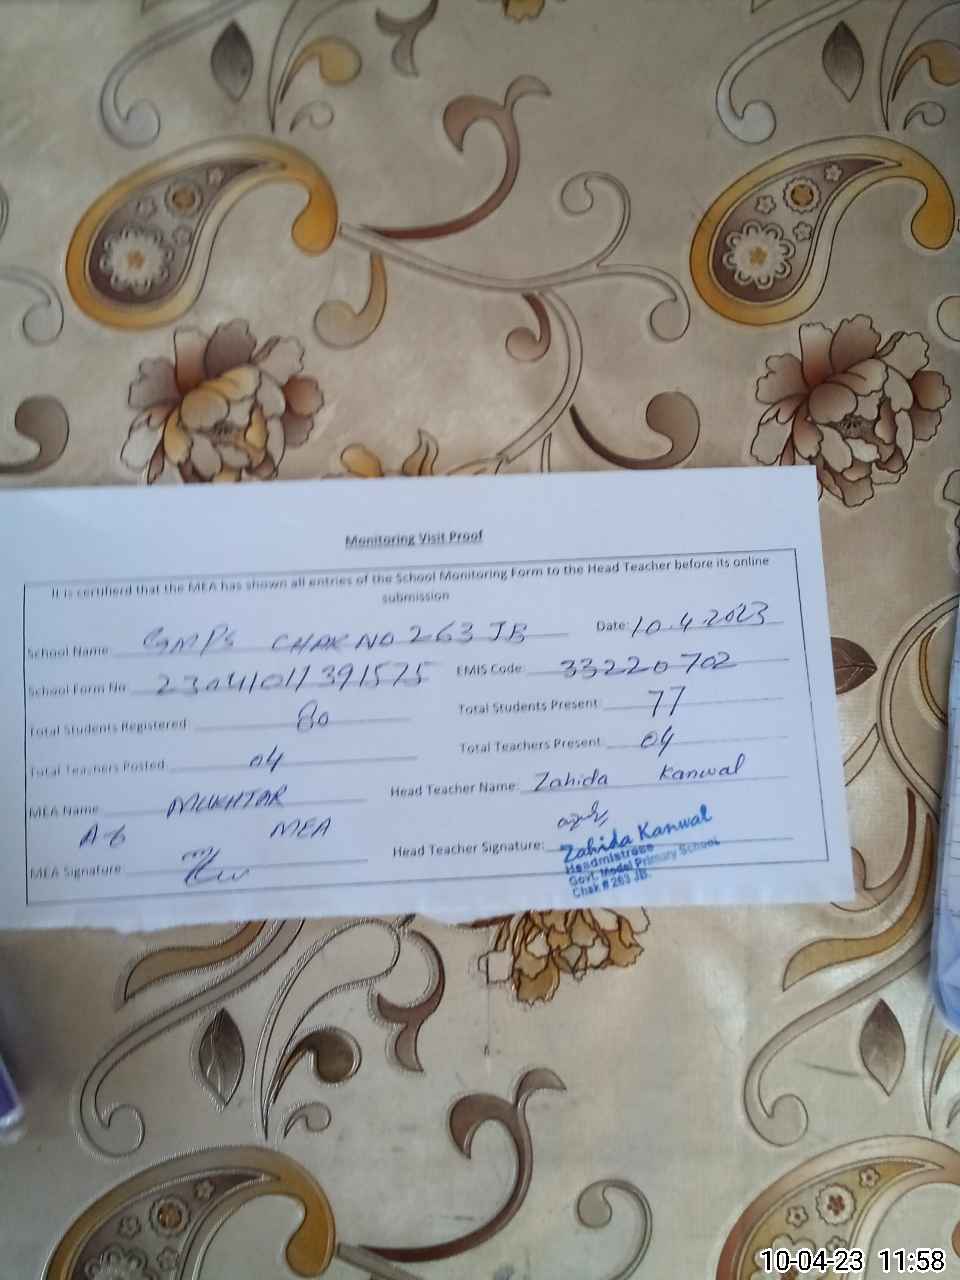 Monitoring Visit Proof
It is certifierd that the MEA has shown all entries of the School Monitoring Form to the Head Teacher before its online
submission
School Name GMPS CHAK NO 263 JB Date: 10.4.2023
School Form No 23041011391575 EMIS Code: 33220702
Total Students Registered 80 Total Students Present: 77
Total Teachers Posted 04 Total Teachers Present: 04
MEA Name MUKHTAR Head Teacher Name: Zahida Kanwal
MEA
MEA Signature Head Teacher Signature:
Zahida Kanwal
Headmistress
Govt. Model Primary School
Chak # 263 JB.
10-04-23 11:58